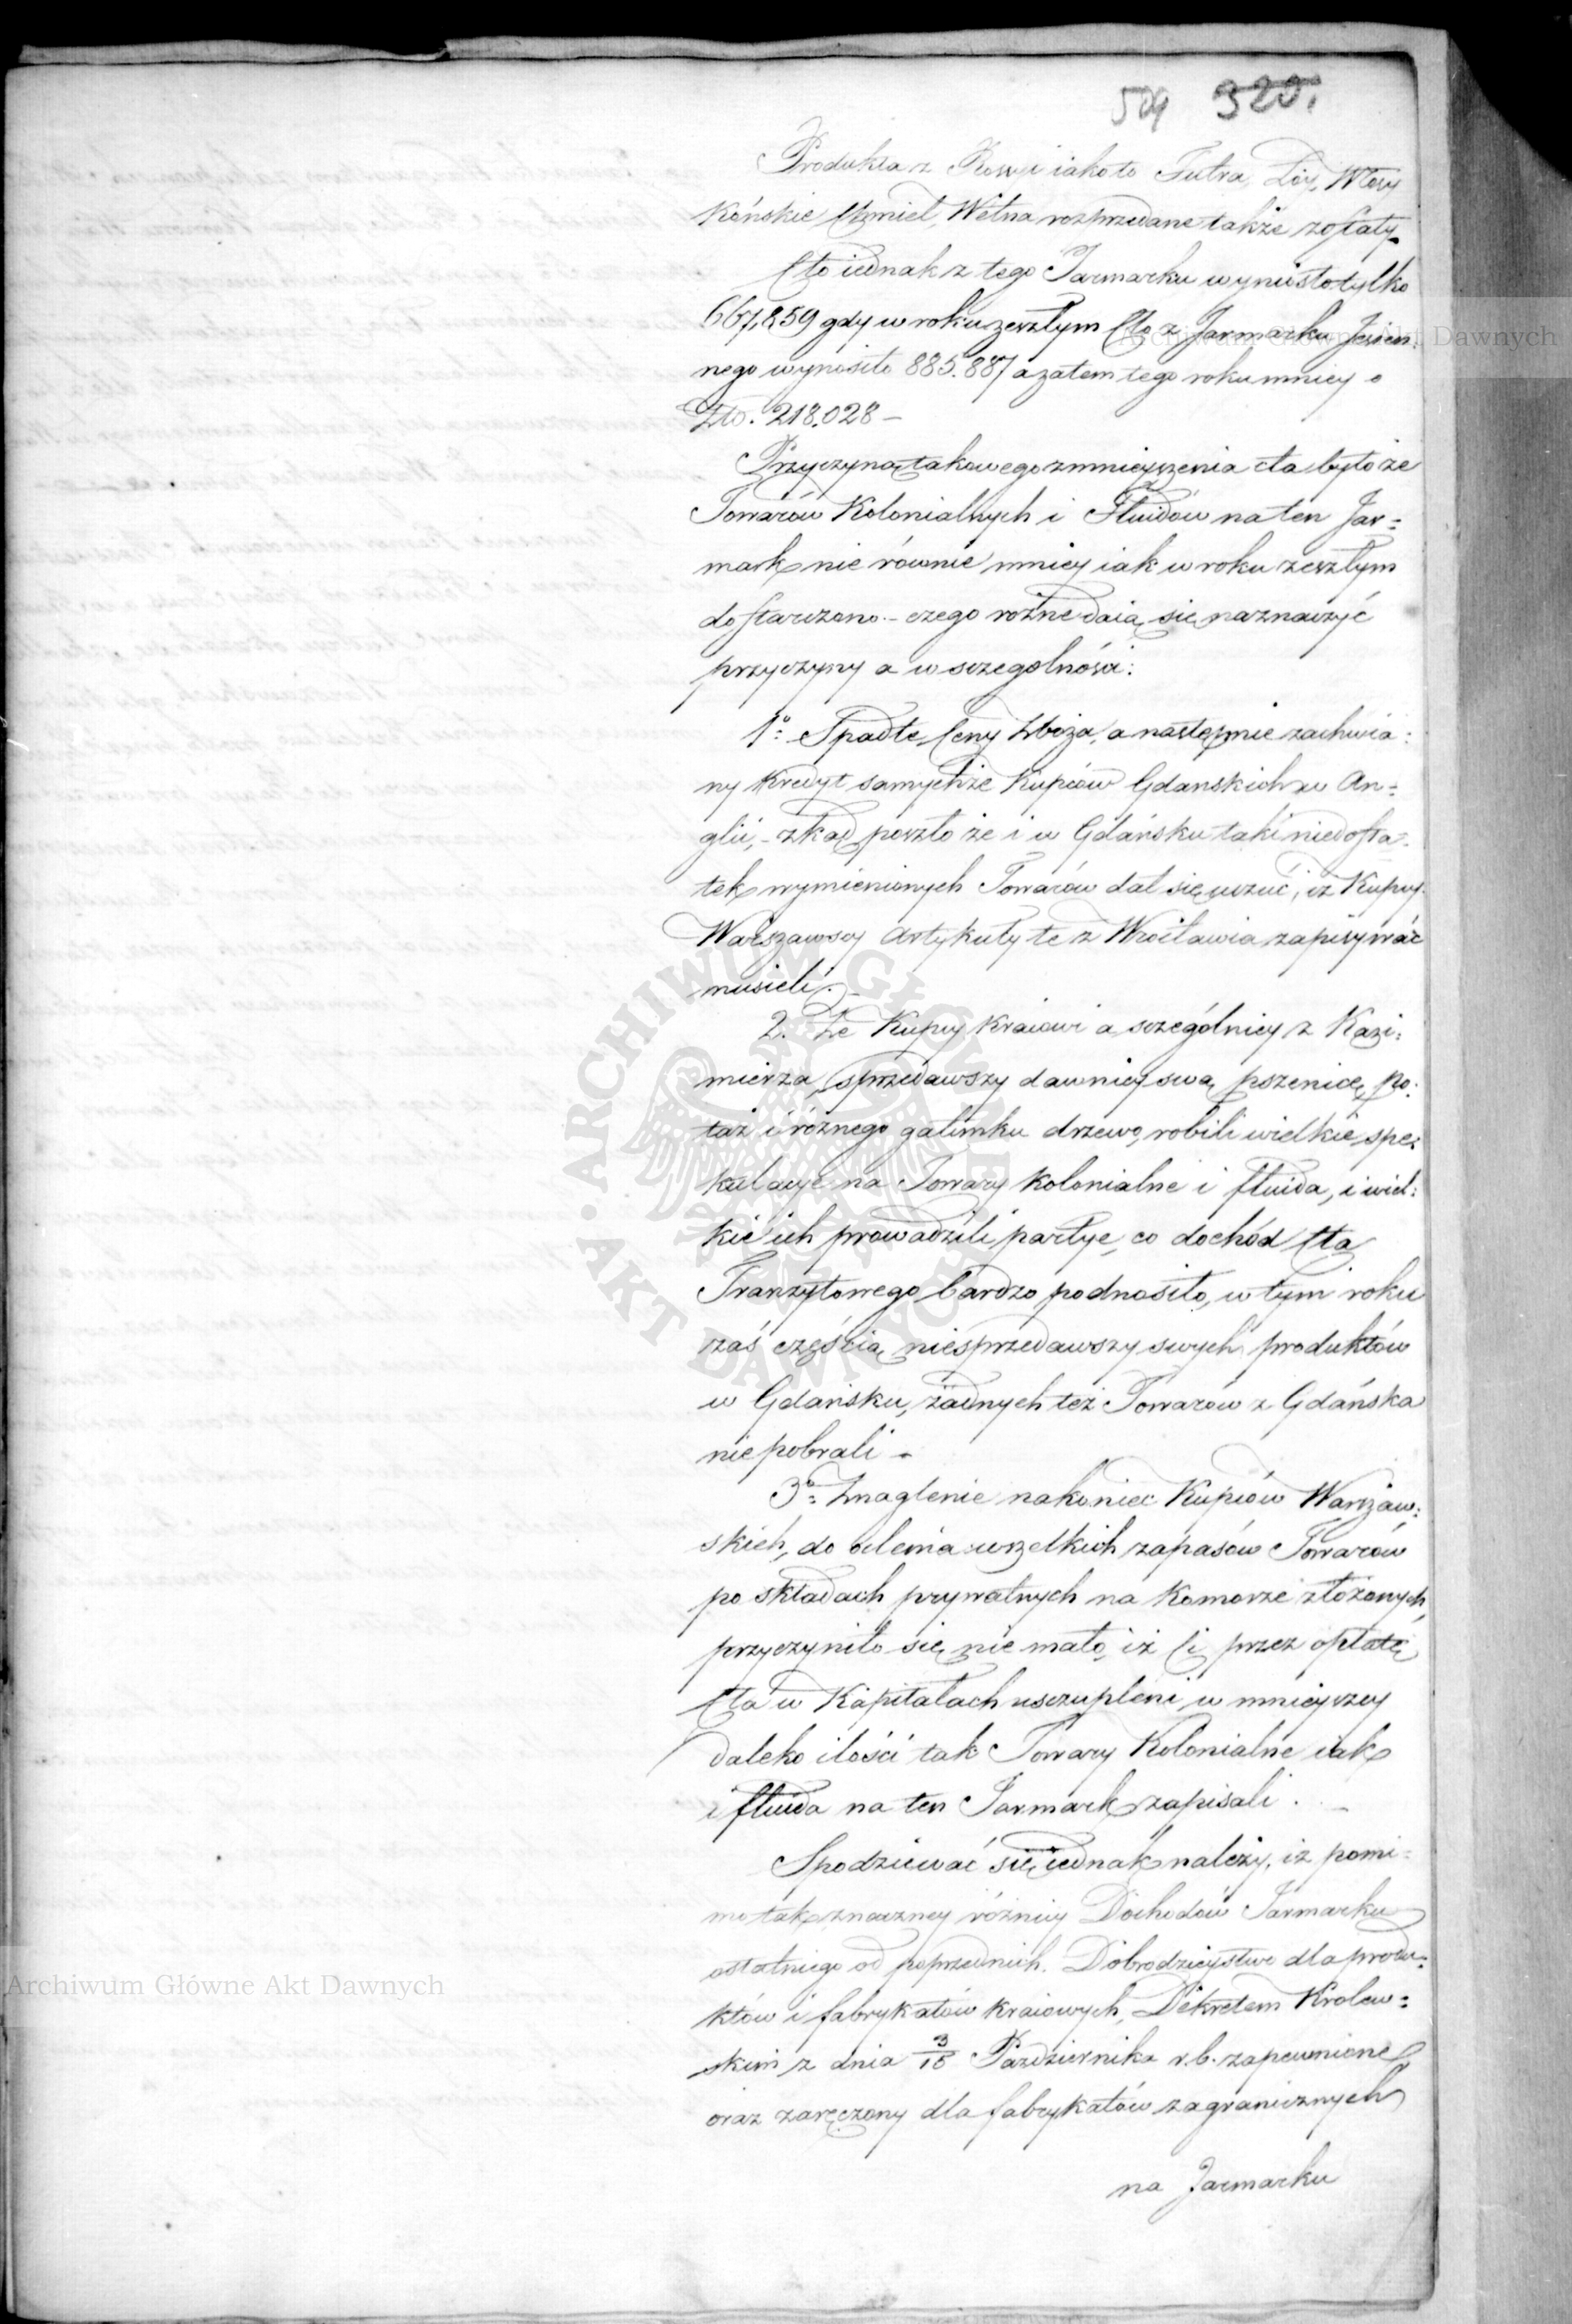 509 320.
Produkta z Rossyi iakoto Futra, Łoy, Włosy
Końskie Chmiel, Wełna rozprzedane także zostały.
Cło iednak z tego Jarmarku wyniosło tylko
667,859 gdy w roku zeszłym Cło z Jarmarku Jesien:
nego wynosiło 885.887 a zatem tego roku mniey o
Złp. 218.028 –
Przyczyną takowego zmnieyszenia cła było że
Towarów Kolonialnych i Fluidów na ten Jar=
mark nie równie mniey iak w roku zeszłym
dostarczono. – czego różne daią się naznaczyć
przyczyny a w szczegolności:
1º: Spadłe Ceny Zboża, a następnie zachwia:
ny Kredyt samychże Kupców Gdanskich w An=
glii, – zkąd poszło że i w Gdańsku taki niedosta=
tek wymienionych Towarów dał się uczuć, iż Kupcy
Warszawscy Artykuły te z Wrocławia zapisywać
musieli. –
2. Że Kupcy Kraiowi a szczególniey z Kazi:
mierza, sprzedawszy dawniey swą pszenicę, po:
taż i różnego gatunku drzewo, robili wielkie spe:
kulacye na Towary Kolonialne i fluida, i wiel:
kie ich prowadzili partye, co dochód Cła
Tranzytowego bardzo podnosiło, w tym roku
zaś częścią niesprzedawszy swych produktów
w Gdańsku, żadnych też Towarów z Gdańska
nie pobrali –
3º: Znaglenie nakoniec Kupców Warszaw:
skich, do oclenia wszelkich zapasów Towarów
po składach prywatnych na Komorze złożonych,
przyczyniło się nie mało, iż Ci przez opłatę
Cła w Kapitałach uszczupleni w mnieyszey
daleko ilości tak Towary Kolonialne iak
i fluida na ten Jarmark zapisali. –
Spodziewać się iednak należy, iż pomi=
mo tak znaczney różnicy Dochodów Jarmarku
ostatniego od poprzednich. Dobrodzieystwo dla produ:
któw i fabrykatów kraiowych, Dekretem Królew=
skim z dnia 3/15 Października r.b. zapewnione
oraz zaręczony dla fabrykatów zagranicznych
na Jarmarku
Archiwum Główne Akt Dawnych
Archiwum Główne Akt Dawnych
ARCHIWUM GŁÓWNE AKT DAWNYCH